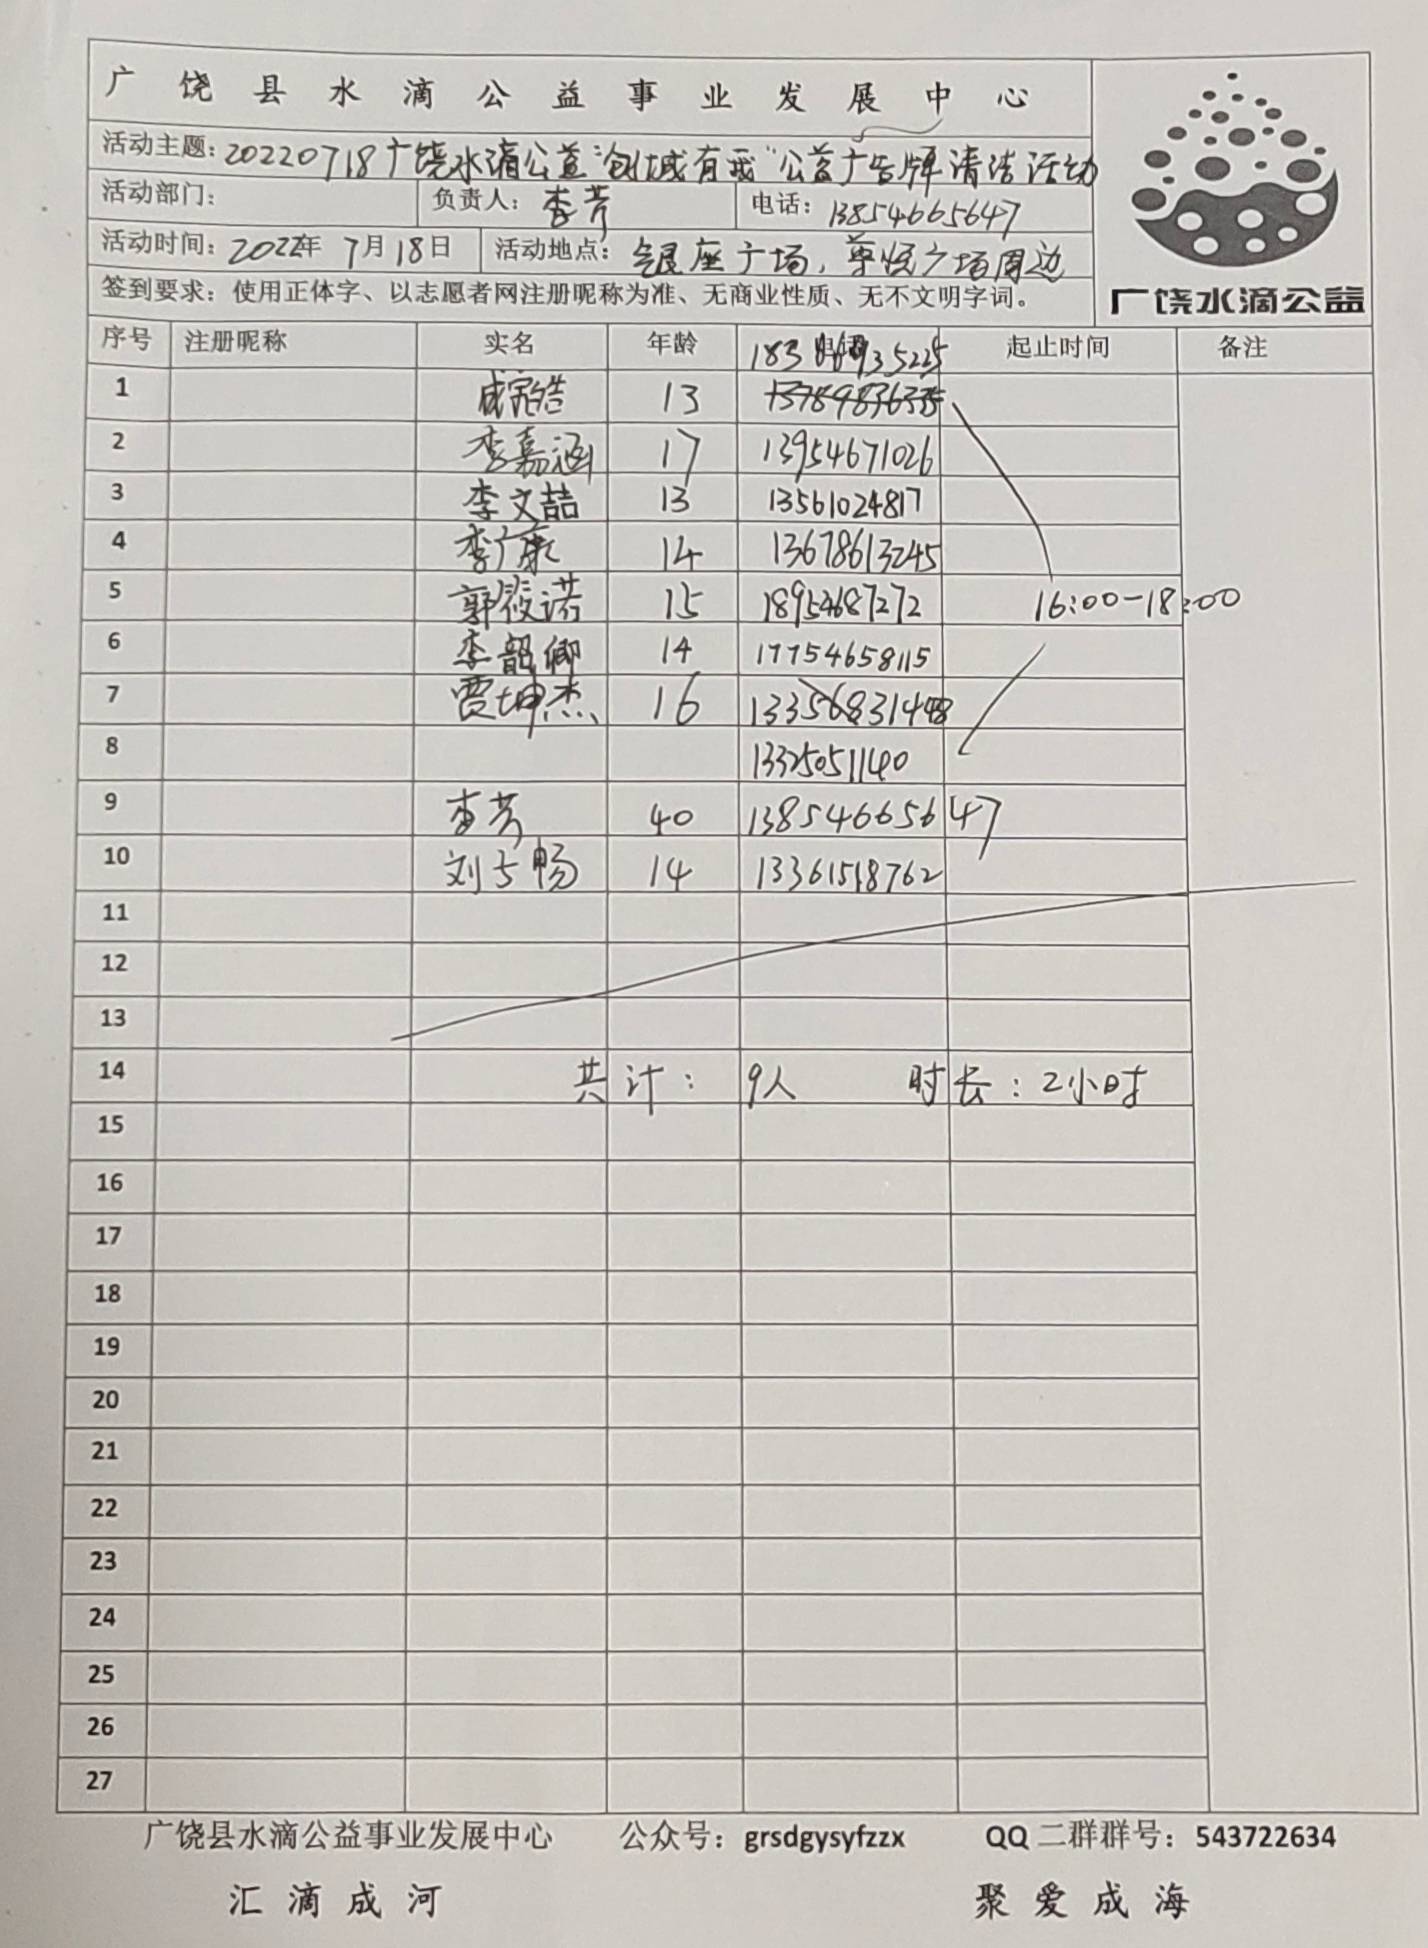 广饶县水滴公益事业发展中心
活动主题：20220718广饶水滴公益“创城有我”公益广告牌清洁活动
活动部门： 负责人：李芳 电话：13854665647
活动时间：2022年7月18日 活动地点：银座广场，乐悦广场周边
签到要求：使用正体字、以志愿者网注册昵称为准、无商业性质、无不文明字词。
广饶水滴公益
序号 注册昵称 实名 年龄 电话 起止时间 备注
1 成 皓 13
2 李嘉涵 17 13954671026
3 李文喆 13 13561024817
4 李广康 14 13678613245
5 郭筱诺 15 18954687272 16:00-18:00
6 李韶卿 14 17754658115
7 贾坤杰 16
8 13325051140
9 李芳 40 13854665647
10 刘于畅 14 13361518762
11
12
13
14 共计：9人 时长：2小时
15
16
17
18
19
20
21
22
23
24
25
26
27
广饶县水滴公益事业发展中心 公众号：grsdgysyfzzx QQ二群群号：543722634
汇滴成河 聚爱成海